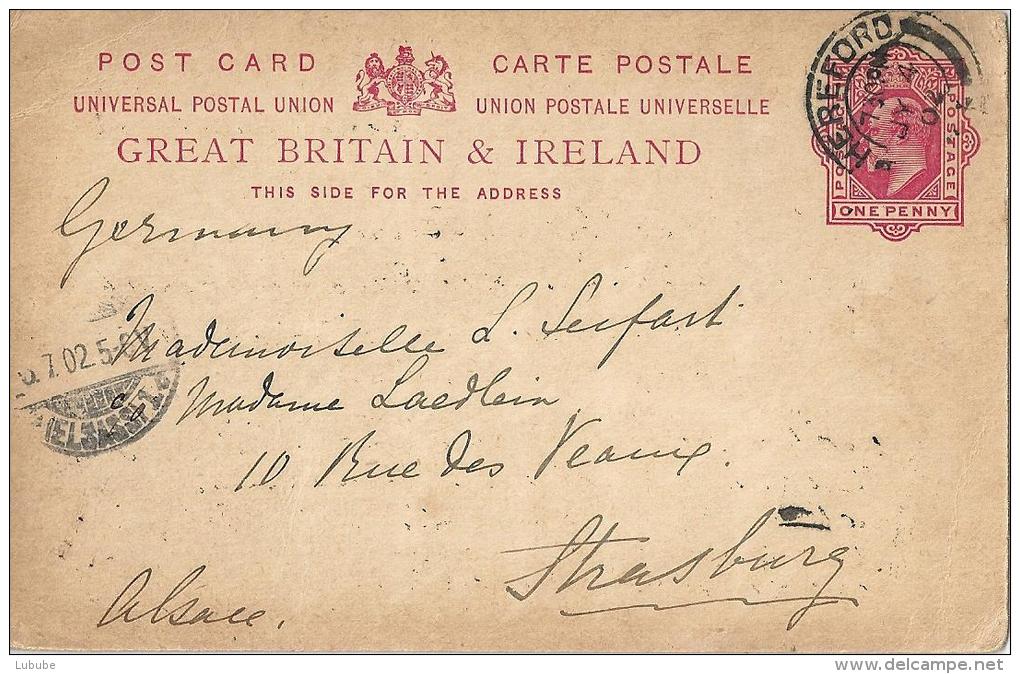 POST CARD CARTE POSTALE
UNIVERSAL POSTAL UNION UNION POSTALE UNIVERSELLE
GREAT BRITAIN & IRELAND
THIS SIDE FOR THE ADDRESS
HEREFORD
JY 4
02
POSTAGE
ONE PENNY
Germany
Mademoiselle L. Seifart
7.02.5-6
c/o Madame Laedlein
(ELSASS)
10 Rue des Veaux.
Strasburg
Alsace.
Lubube
www.delcampe.net